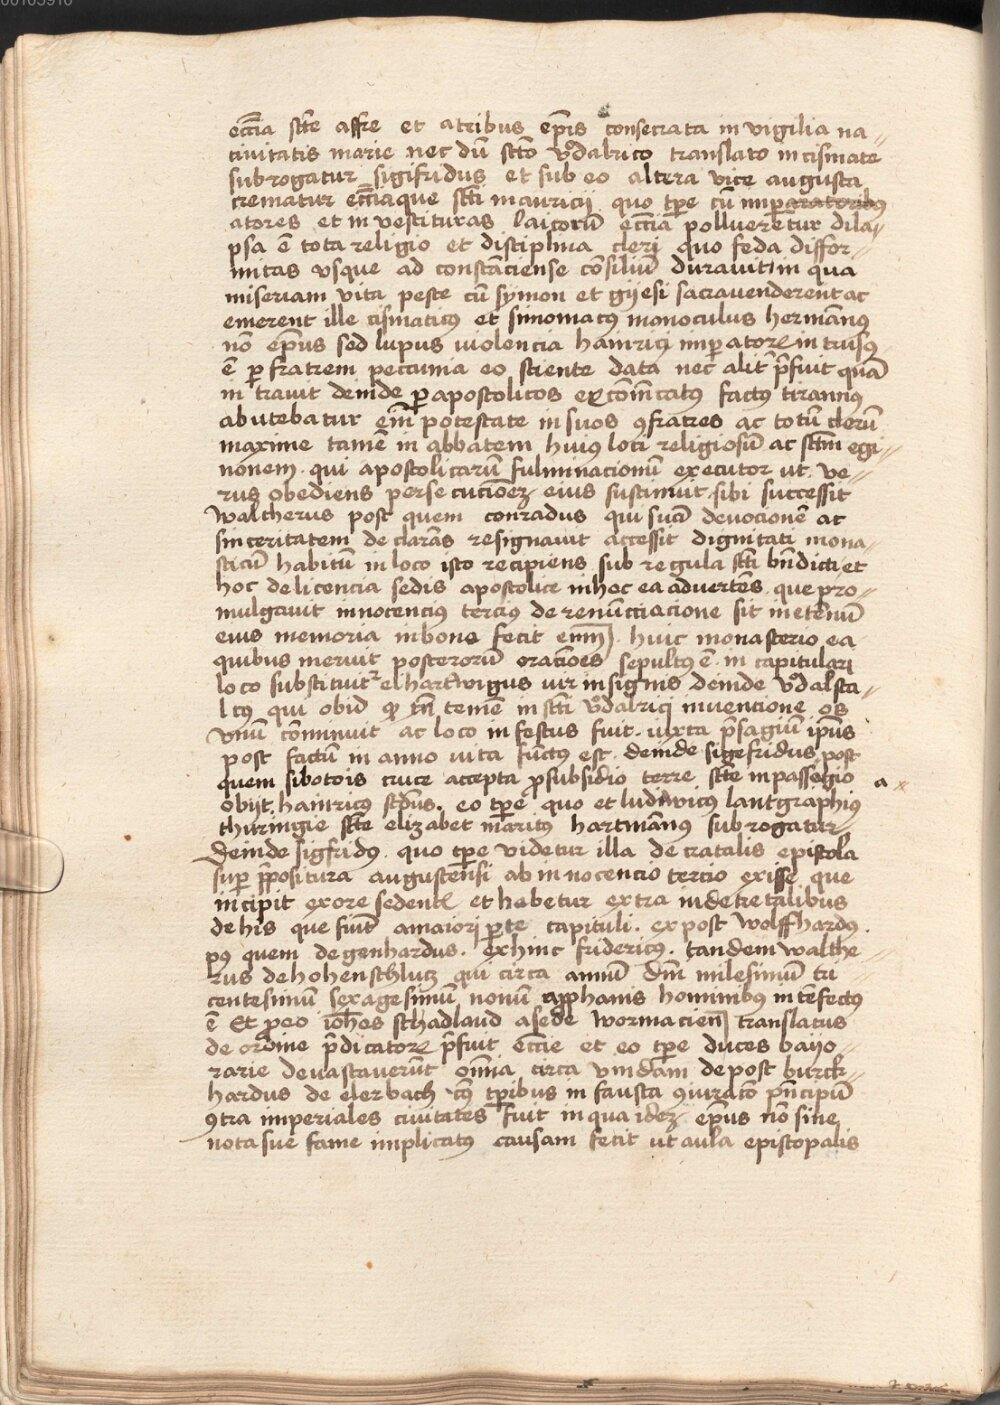 00103910
eccīa scte affre et atribus ep̄is consecrata in vigilia na
tiuitatis marie nec dū scto vdalrico translato in cismate
subrogatur sigifridus et sub eo altera vice augusta
crematur ecc̄iaque scti mauricij quo tpe cū imp
atores et in vestituras laicorū ecc̄ia pollueretur dila
psa ē tota religio et disciplina cleri quo feda diffor
mitas vsque ad constanciense cōsiliū durauit in qua
miseriam vita peste cū symon et gyesi sacra venderent ac
emerent ille cismaticꝰ et simoniacꝰ monoculus hermānus
nō ep̄us sed lupus violencia hainrici imp̄atorꝭ in trusꝰ
ē ꝑ fratrem peccunia eo sciente data nec alit̄ p̄fuit quā
in trauit deinde ꝑ apostolicos excōm̄catus factꝰ tirannꝰ
abutebatur em̄ potestate in suos ꝯfratres ac totū clerū
maxime tamē in abbatem huius loci religiosū ac sctm egi
nonem qui apostolicarū fulminacionū executor ut ve
rus obediens persecucionēz eius sustinuit sibi successit
waltherus post quem conradus qui suā deuocionē ac
sinceritatem declarās resignauit accessit dignitati mona
sticū habitū in loco isto recipiens sub regula scti bn̄dicti et
hoc de licencia sedis apostolice in hoc ea aduertēs que pro
mulgauit innocencius tercius de renūctiacione sit in eternū
eius memoria in bona fecit enim huic monasterio ea
quibus meruit posterorū oracioēs sepultꝰ ē in capitulari
loco substituit elhartwigus vir insignis deinde vdalsca
lcꝰ qui obid in scti vdalrici inuencione os
vnū cōminuit ac loco infestus fuit iuxta p̄sagiū ip̄ius
post factū in anno vita functꝰ est deinde sigefridus post
quem sibotois cruce accepta ꝓ subsidio terre scte in passagio a
obijt hainricus scdus eo tpe quo et ludwicus lantgraphiꝰ
thuringie scte elizabet maritꝰ hartmānus subrogatur
deinde sigfridꝰ quo tpe videtur illa decratalis epistola
suꝑ p̄positura augustensi ab innocencio tercio exisse que
incipit ex ore sedentꝭ et habetur extra in decretalibus
de his que fiūt a maiori ꝑte capituli ex post wolffhardꝰ
pꝰ quem degenhardus exhinc fridericꝰ tandem walthe
rus de hohenschlucz qui circa annū dn̄i milesimū tri
centesimū sexagesimū nonū a pphanis hominibꝰ in terfectꝰ
ē Et p eo ioh̄es schadland a sede wormacien̄ translatus
de ordine p̄dicatorꝭ p̄fuit ecc̄ie et eo tpe duces baijo
rarie deuastauerūt om̄ia circa vindam depost burck
hardus de elerbach cꝰ tpribus in fausta ꝯiuracō pn̄cipū
ꝯtra imperiales ciuitates fuit in qua idez ep̄us nō sine
nota sue fame implicatꝰ causam fecit ut aula episcopalis